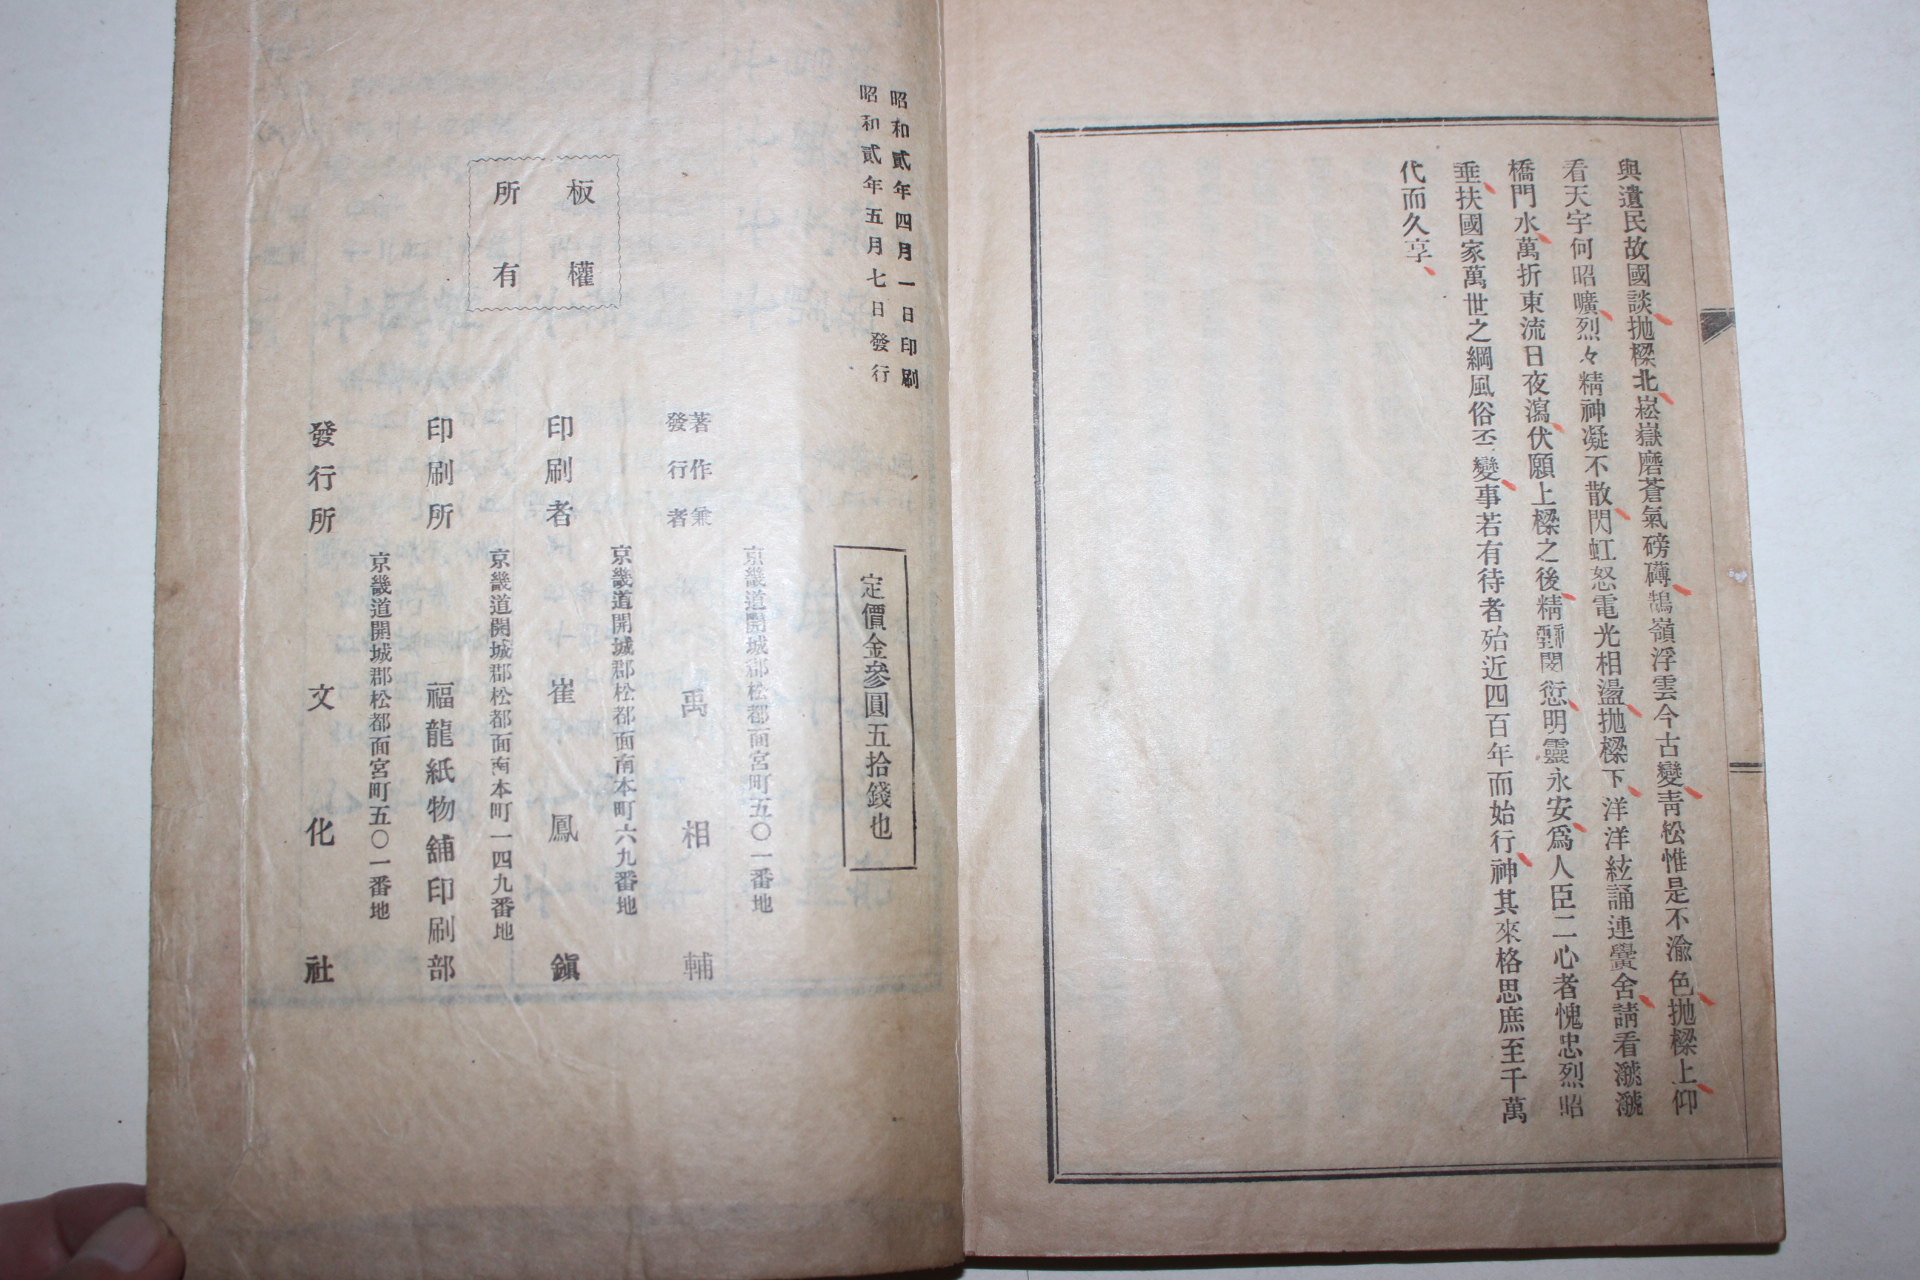 與遺民故國談抛樑北崧嶽磨蒼氣磅礴鵠嶺浮雲今古變靑松惟是不渝色抛樑上仰
看天宇何昭曠烈々精神凝不散閃虹怒電光相盪抛樑下洋洋絃誦連黌舍請看濊濊
橋門水萬折東流日夜瀉伏願上樑之後精 閟 愆明靈永安爲人臣二心者愧忠烈昭
垂扶國家萬世之綱風俗丕變事若有待者殆近四百年而始行神其來格思庶至千萬
代而久享
昭和貳年四月一日印刷
昭和貳年五月七日發行
板權
所有
定價金參圓五拾錢也
京畿道開城郡松都面宮町五〇一番地
著作兼
發行者 禹相輔
京畿道開城郡松都面南本町六九番地
印刷者 崔鳳鎭
京畿道開城郡松都面南本町一四九番地
印刷所 福龍紙物舖印刷部
京畿道開城郡松都面宮町五〇一番地
發行所 文化社